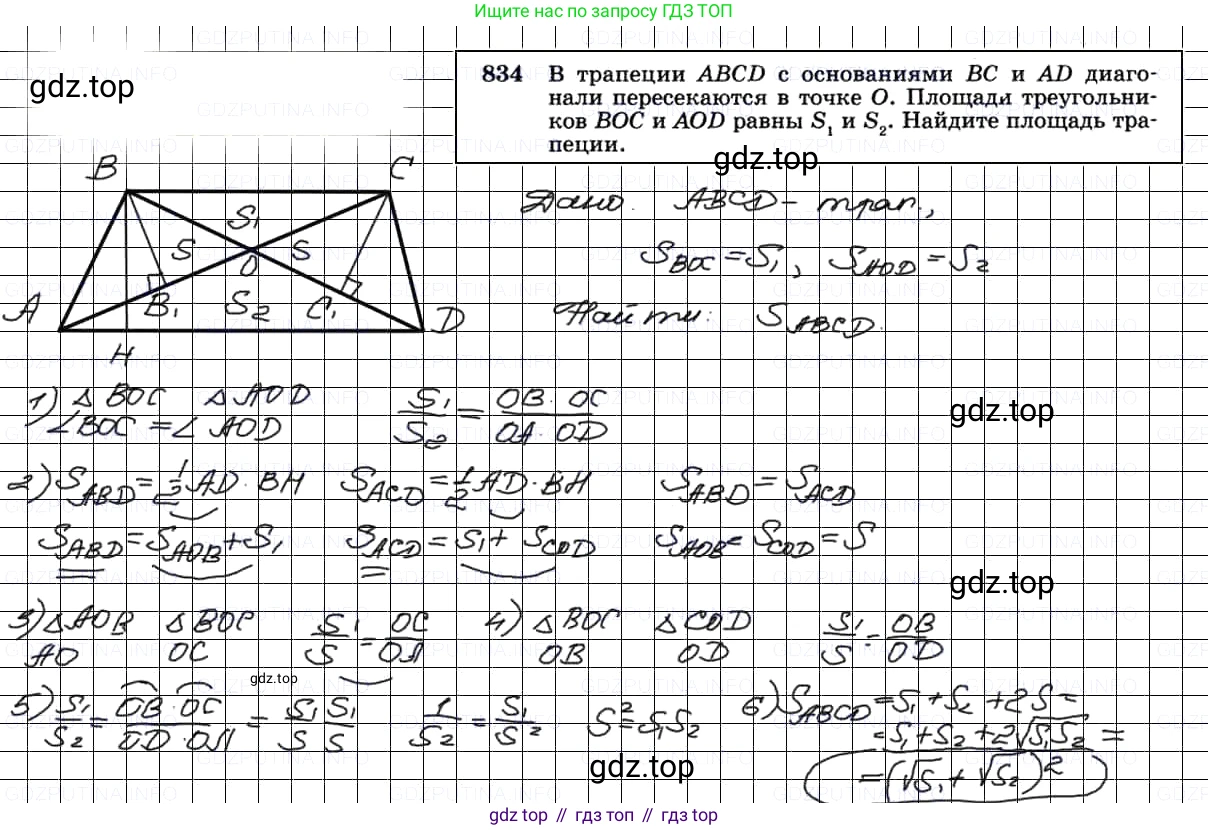 Ищите нас по запросу ГДЗ ТОП
gdz.top
834 В трапеции ABCD с основаниями BC и AD диаго-
нали пересекаются в точке O. Площади треугольни-
ков BOC и AOD равны S₁ и S₂. Найдите площадь тра-
пеции.
gdz.top
B C
S₁
S S
O
A B₁ S₂ C₁ D
H
Дано. ABCD – трап.,
S_BOC = S₁, S_AOD = S₂
Найти: S_ABCD.
1) △ BOC △ AOD S₁/S₂ = OB · OC/OA · OD
∠BOC = ∠ AOD
gdz.top
2) S_ABD = 1/2 AD · BH S_ACD = 1/2 AD · BH S_ABD = S_ACD
S_ABD = S_AOB + S₁ S_ACD = S₁ + S_COD S_AOB = S_COD = S
gdz.top
3) △ AOB △ BOC S₁/S = OC/OA 4) △ BOC △ COD S₁/S = OB/OD
AO OC OB OD
gdz.top
5) S₁/S₂ = OB · OC/OD · OA = S₁ S₁/S S 1/S₂ = S₁/S² S² = S₁S₂ 6) S_ABCD = S₁ + S₂ + 2S =
= S₁ + S₂ + 2√S₁S₂ =
= (√S₁ + √S₂)²
gdz.top
gdz top // гдз топ // gdz top